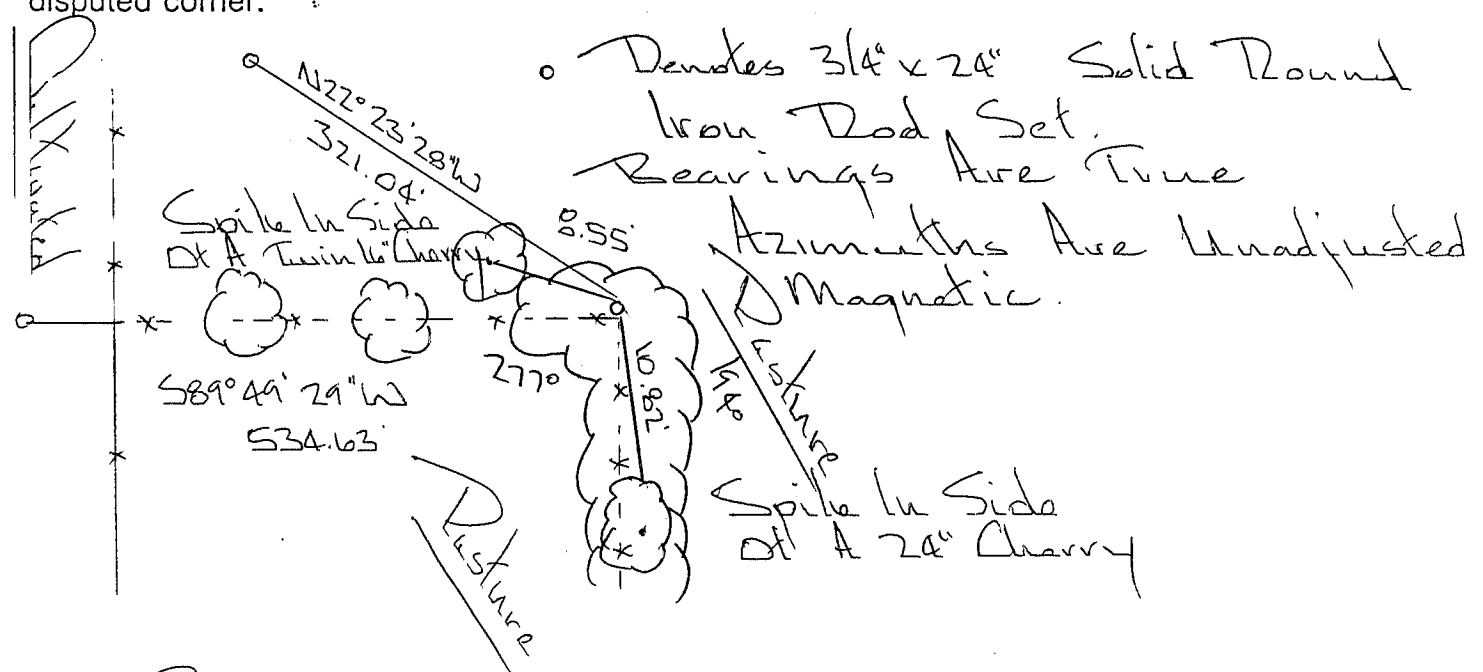 disputed corner.
o Denotes 3/4" x 24" Solid Round
Iron Rod Set.
Bearings Are True
Azimuths Are Unadjusted
Magnetic.
N22°23'28"W
321.04'
Spike In Side
Of A Twin 16" Cherry
8.55'
277°
S89°49'29"W
534.63'
10.82'
198°
Pasture
Spike In Side
Of A 24" Cherry
Pasture